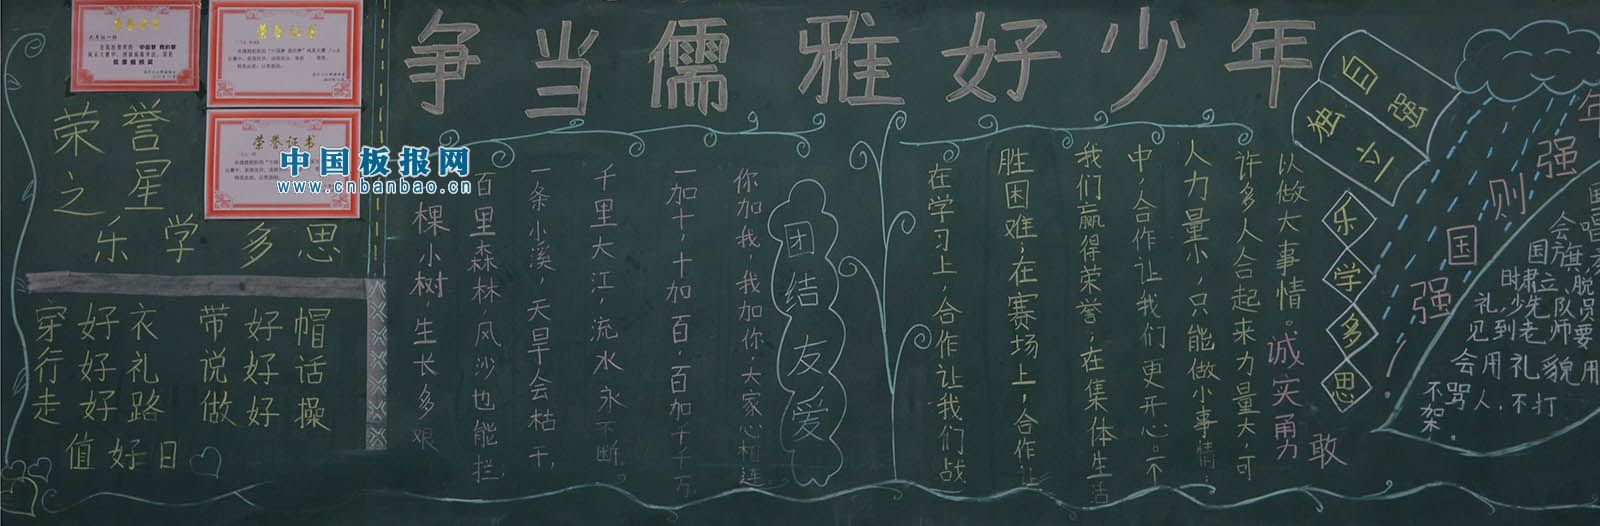 争当儒雅好少年
荣誉证书
荣誉证书
荣誉证书
优秀组织奖
中国板报网
www.cnbanbao.cn
荣誉
之星
乐学多思
穿好衣 带好帽
行好礼 说好话
走好路 做好操
值好日
棵小树,生长多艰
百里森林,风沙也能拦
一条小溪,天旱会枯干,
千里大江,流水永不断。
一加十,十加百,百加千千万
你加我,我加你,大家心相连
团结友爱
在学习上,合作让我们战
胜困难,在赛场上,合作让
我们赢得荣誉,在集体生活
中,合作让我们更开心。不
人力量小,只能做小事情,
许多人合起来力量大,可
以做大事情。
诚实勇敢
自强
独立
乐学多思
年强则国强
会
国旗脱
时肃立、
礼,少先队员
见到老师要
会用礼貌用
不骂人,不打
架。